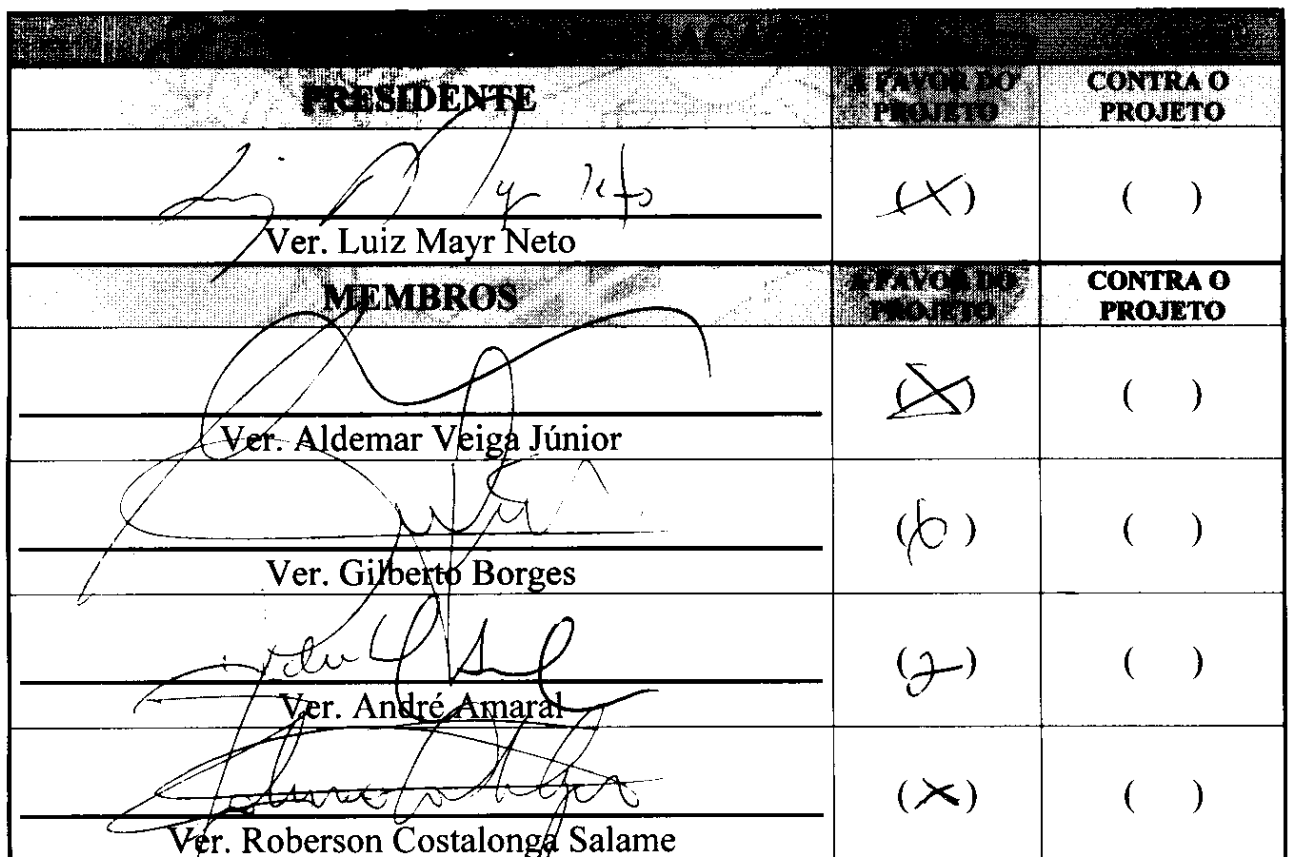 PRESIDENTE
A FAVOR DO PROJETO
CONTRA O PROJETO
(X)
( )
Ver. Luiz Mayr Neto
MEMBROS
A FAVOR DO PROJETO
CONTRA O PROJETO
(X)
( )
Ver. Aldemar Veiga Júnior
( )
Ver. Gilberto Borges
( )
Ver. André Amaral
(X)
( )
Ver. Roberson Costalonga Salame